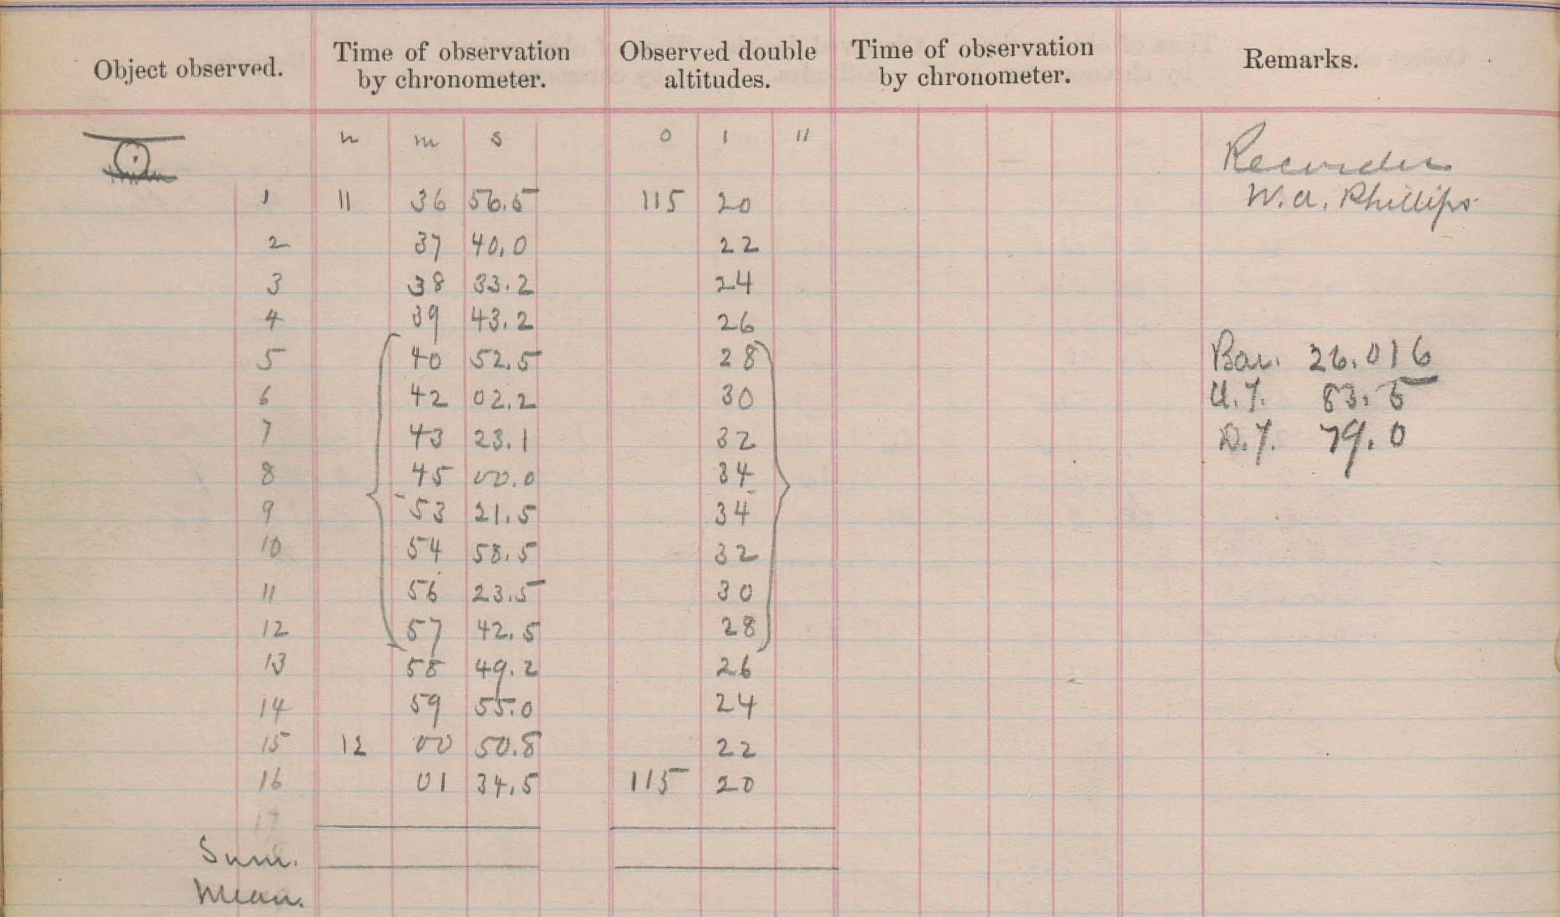 Object observed. Time of observation by chronometer. Observed double altitudes. Time of observation by chronometer. Remarks.
h m s 0 ' "
Recorder
1 11 36 56.5 115 20 W. A. Phillips
2 37 40.0 22
3 38 33.2 24
4 39 43.2 26
5 40 52.5 28 Bar. 26.016
6 42 02.2 30 A.T. 83.5
7 43 23.1 32 D.T. 79.0
8 45 00.0 34
9 53 21.5 34
10 54 58.5 32
11 56 23.5 30
12 57 42.5 28
13 58 49.2 26
14 59 55.0 24
15 12 00 50.8 22
16 01 34.5 115 20
17
Sum.
Mean.